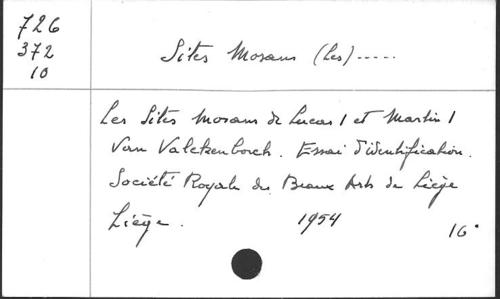 726
372
10
Sites Mosans (Les).....
Les Sites Mosans de Lucas I et Martin I
Van Valckenborch. Essai d'identification.
Société Royale des Beaux Arts de Liège
Liège. 1954 16°